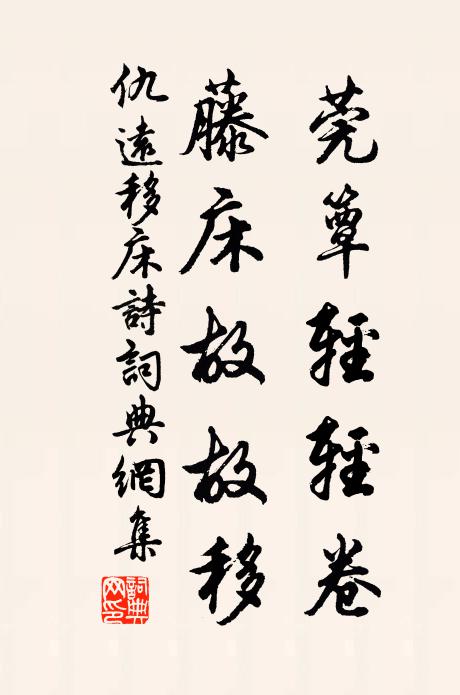 莞簟輕輕卷
藤床故故移
仇遠移床詩詞典網集
詞典網印